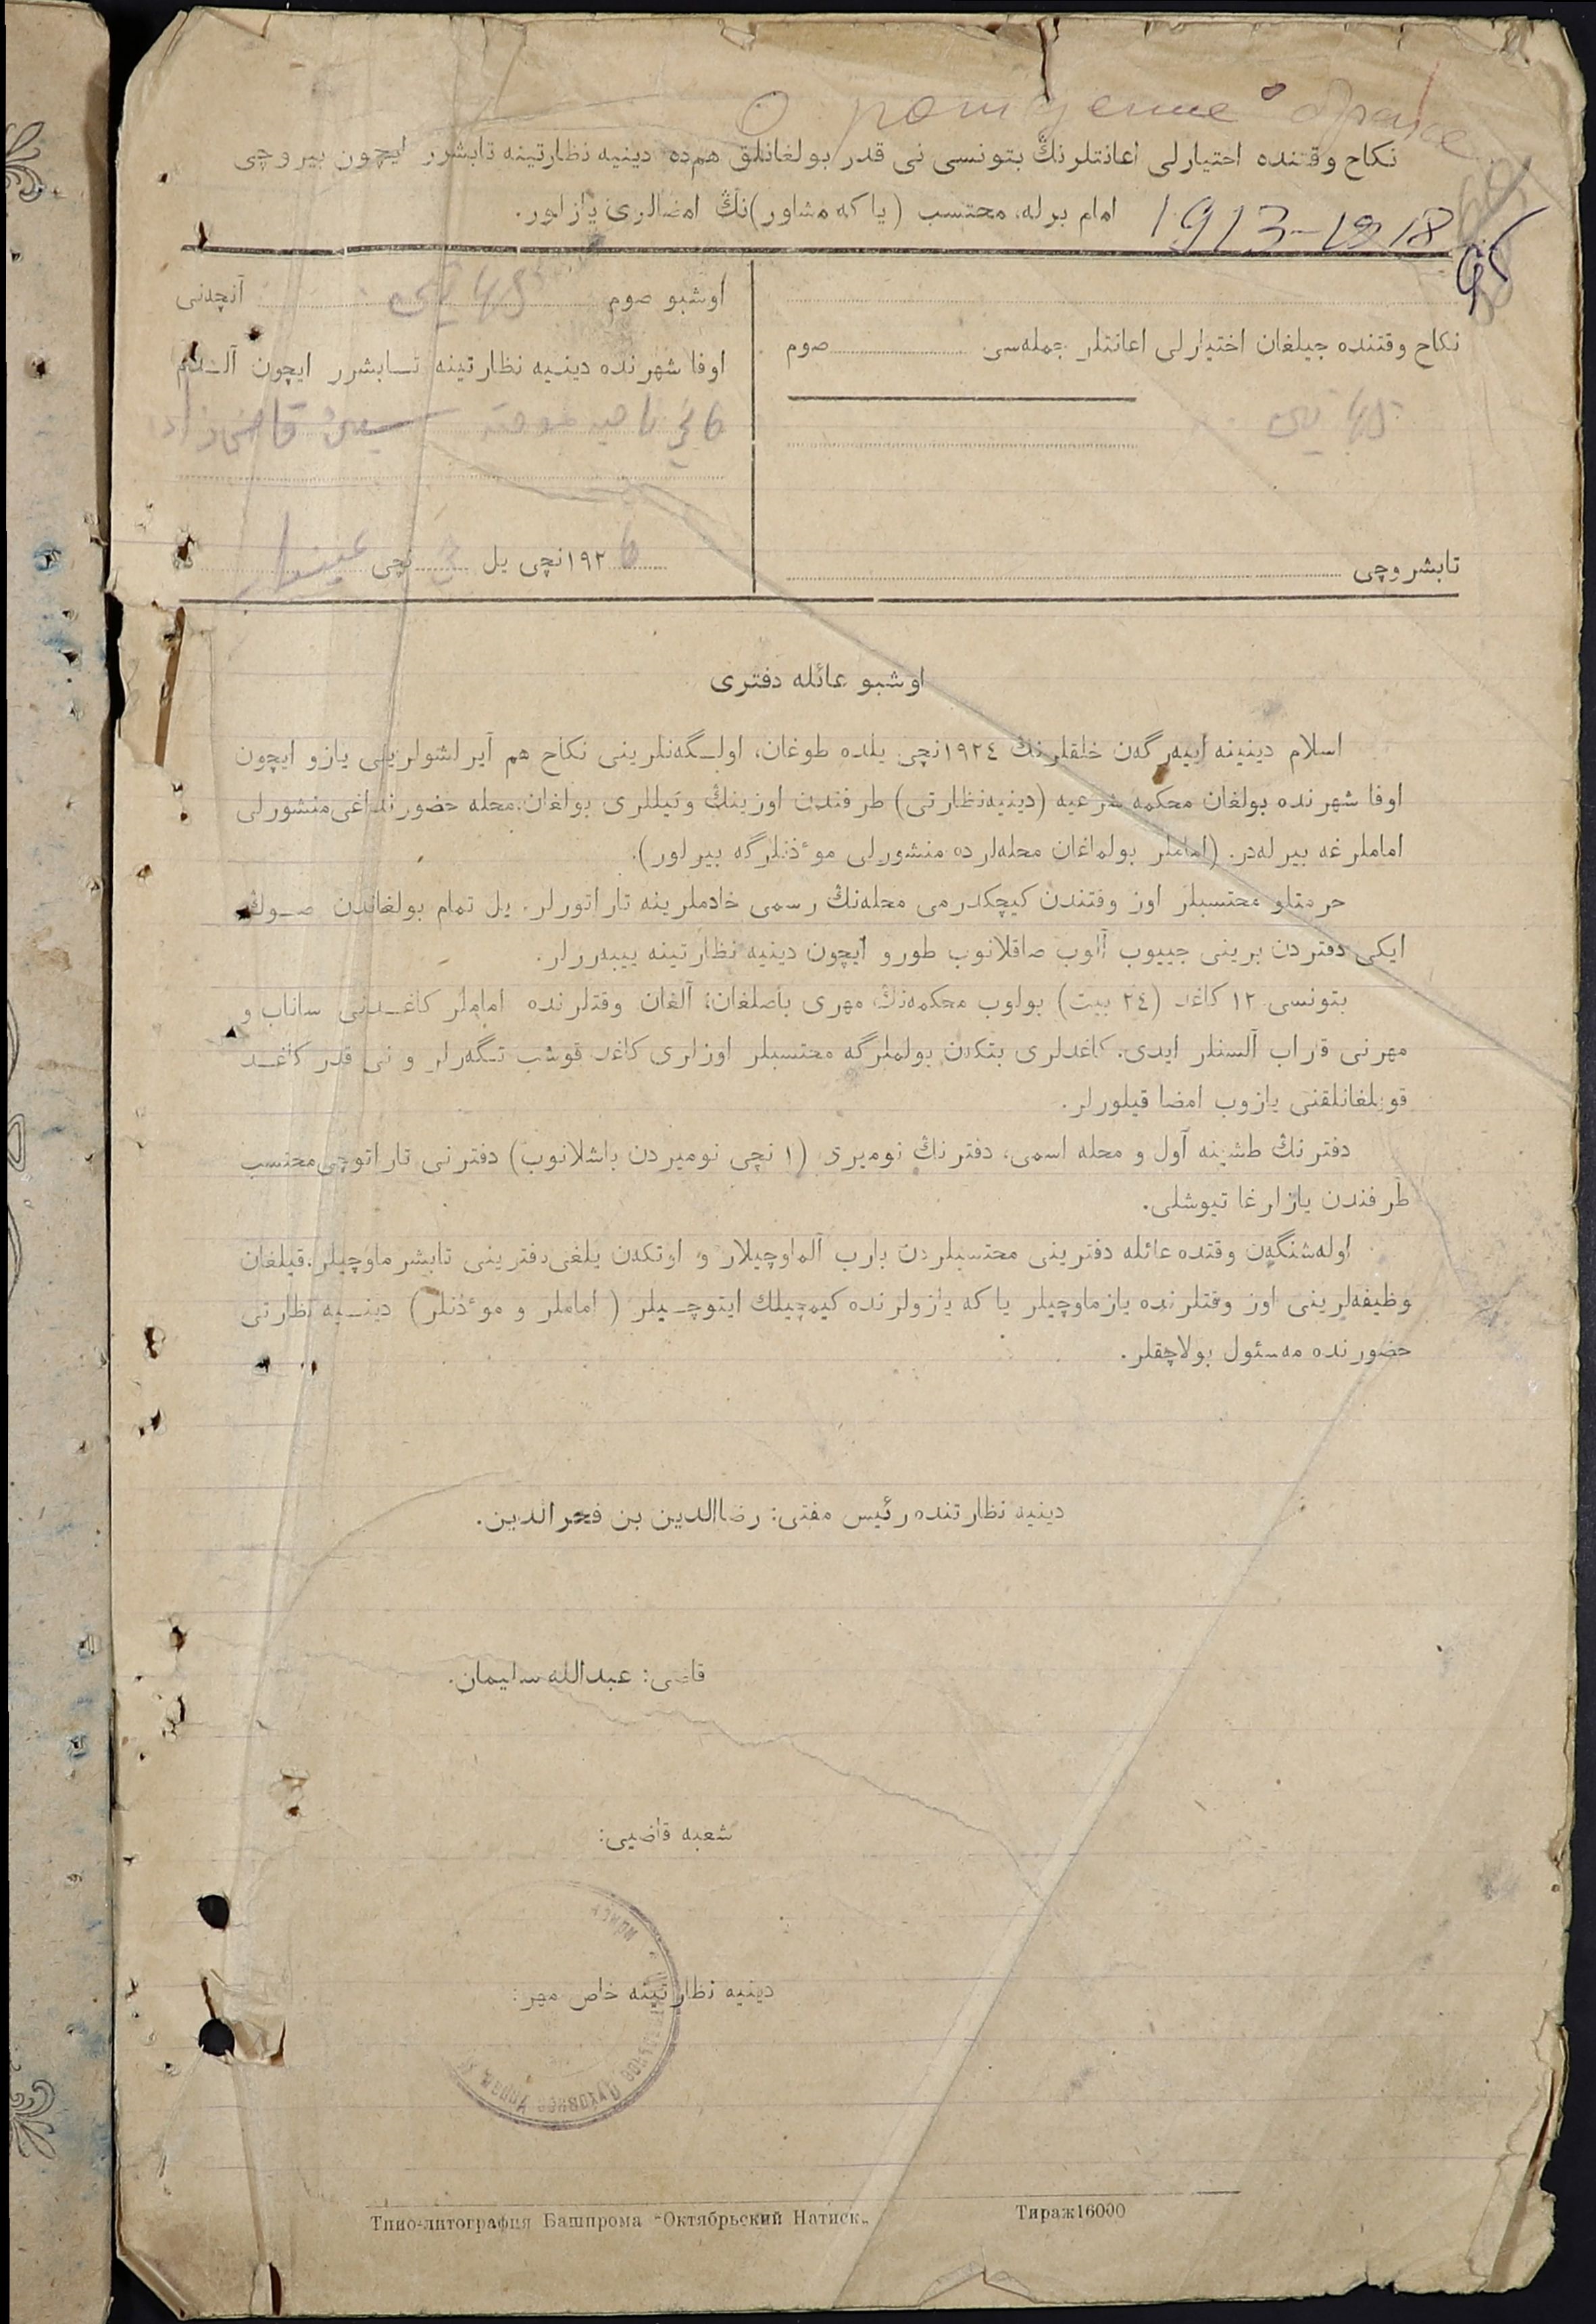 О рождение браке
نكاح وقتنده اختيارلی اعانتلرنڭ بتونسی نی قدر بولغانلق هم‌ده دينيه نظارتينه تابشرر ايچون بيروچی
امام برله، محتسب (ياكه مشاور)نڭ امضالری يازلور.
1913-1918
نكاح وقتنده جيلغان اختيارلی اعانتلر جمله‌سی صوم
تابشروچی
اوشبو صوم آقچه‌نی
اوفا شهرنده دينيه نظارتينه تابشرر ايچون آلدم
١٩٢ نچی يل نچی
اوشبو عائله دفتری
اسلام دينينه اييه‌رگه‌ن خلقلرنڭ ١٩٢٤نچی يلده طوغان، اولگه‌نلرينی نكاح هم آيرلشولرينی يازو ايچون
اوفا شهرنده بولغان محكمه شرعيه (دينيه‌نظارتی) طرفندن اوزينڭ وكيللری بولغان، محله حضورنداغی منشورلی
اماملرغه بيرله‌در. (اماملر بولماغان محله‌لرده منشورلی موٴذنلرگه بيرلور).
حرمتلو محتسبلر اوز وقتندن كيچكدرمی محله‌نڭ رسمی خادملرينه تاراتورلر. يل تمام بولغاندن صوڭ
ايكی دفتردن برينی جييوب آلوب صاقلانوب طورو ايچون دينيه نظارتينه يبه‌رورلر.
بتونسی ١٢ كاغد (٢٤ بيت) بولوب محكمه‌نڭ مهری باصلغان؛ آلغان وقتلرنده اماملر كاغدنی ساناب و
مهرنی قاراب آلسنلر ايدی. كاغدلری بتكان بولملرگه محتسبلر اوزلری كاغد قوشب تگه‌رلر و نی قدر كاغد
قويلغانلقنی يازوب امضا قيلورلر.
دفترنڭ طشينه آول و محله اسمی، دفترنڭ نوميری (١ نچی نوميردن باشلانوب) دفترنی تاراتوچی محتسب
طرفندن يازارغا تيوشلی.
اوله‌شنگه‌ن وقتده عائله دفترينی محتسبلردن بارب آلماوچيلار و اوتكه‌ن يلغی دفترينی تابشرماوچيلر. قيلغان
وظيفه‌لرينی اوز وقتلرنده يازماوچيلر ياكه يازولرنده كيمچيلك ايتوچيلر (اماملر و موٴذنلر) دينيه نظارتی
حضورنده مه‌سئول بولاچقلر.
دينيه نظارتنده رئيس مفتی: رضاالدين بن فخرالدين.
قاضی: عبدالله سليمان.
شعبه قاضيی:
دينيه نظارتينه خاص مهر:
Типо-литография Башпрома "Октябрьский Натиск" Тираж 16000